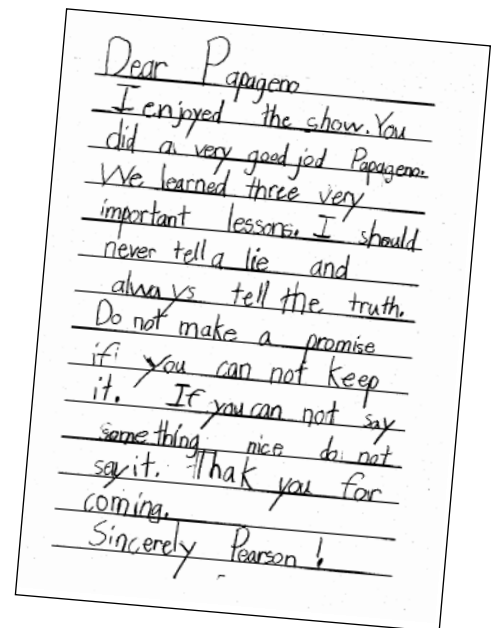 Dear Papageno
I enjoyed the show. You
did a very good jod Papageno.
We learned three very
important lessons. I should
never tell a lie and
always tell the truth.
Do not make a promise
if you can not keep
it. If you can not say
something nice do not
say it. Thak you for
coming.
Sincerely Pearson!